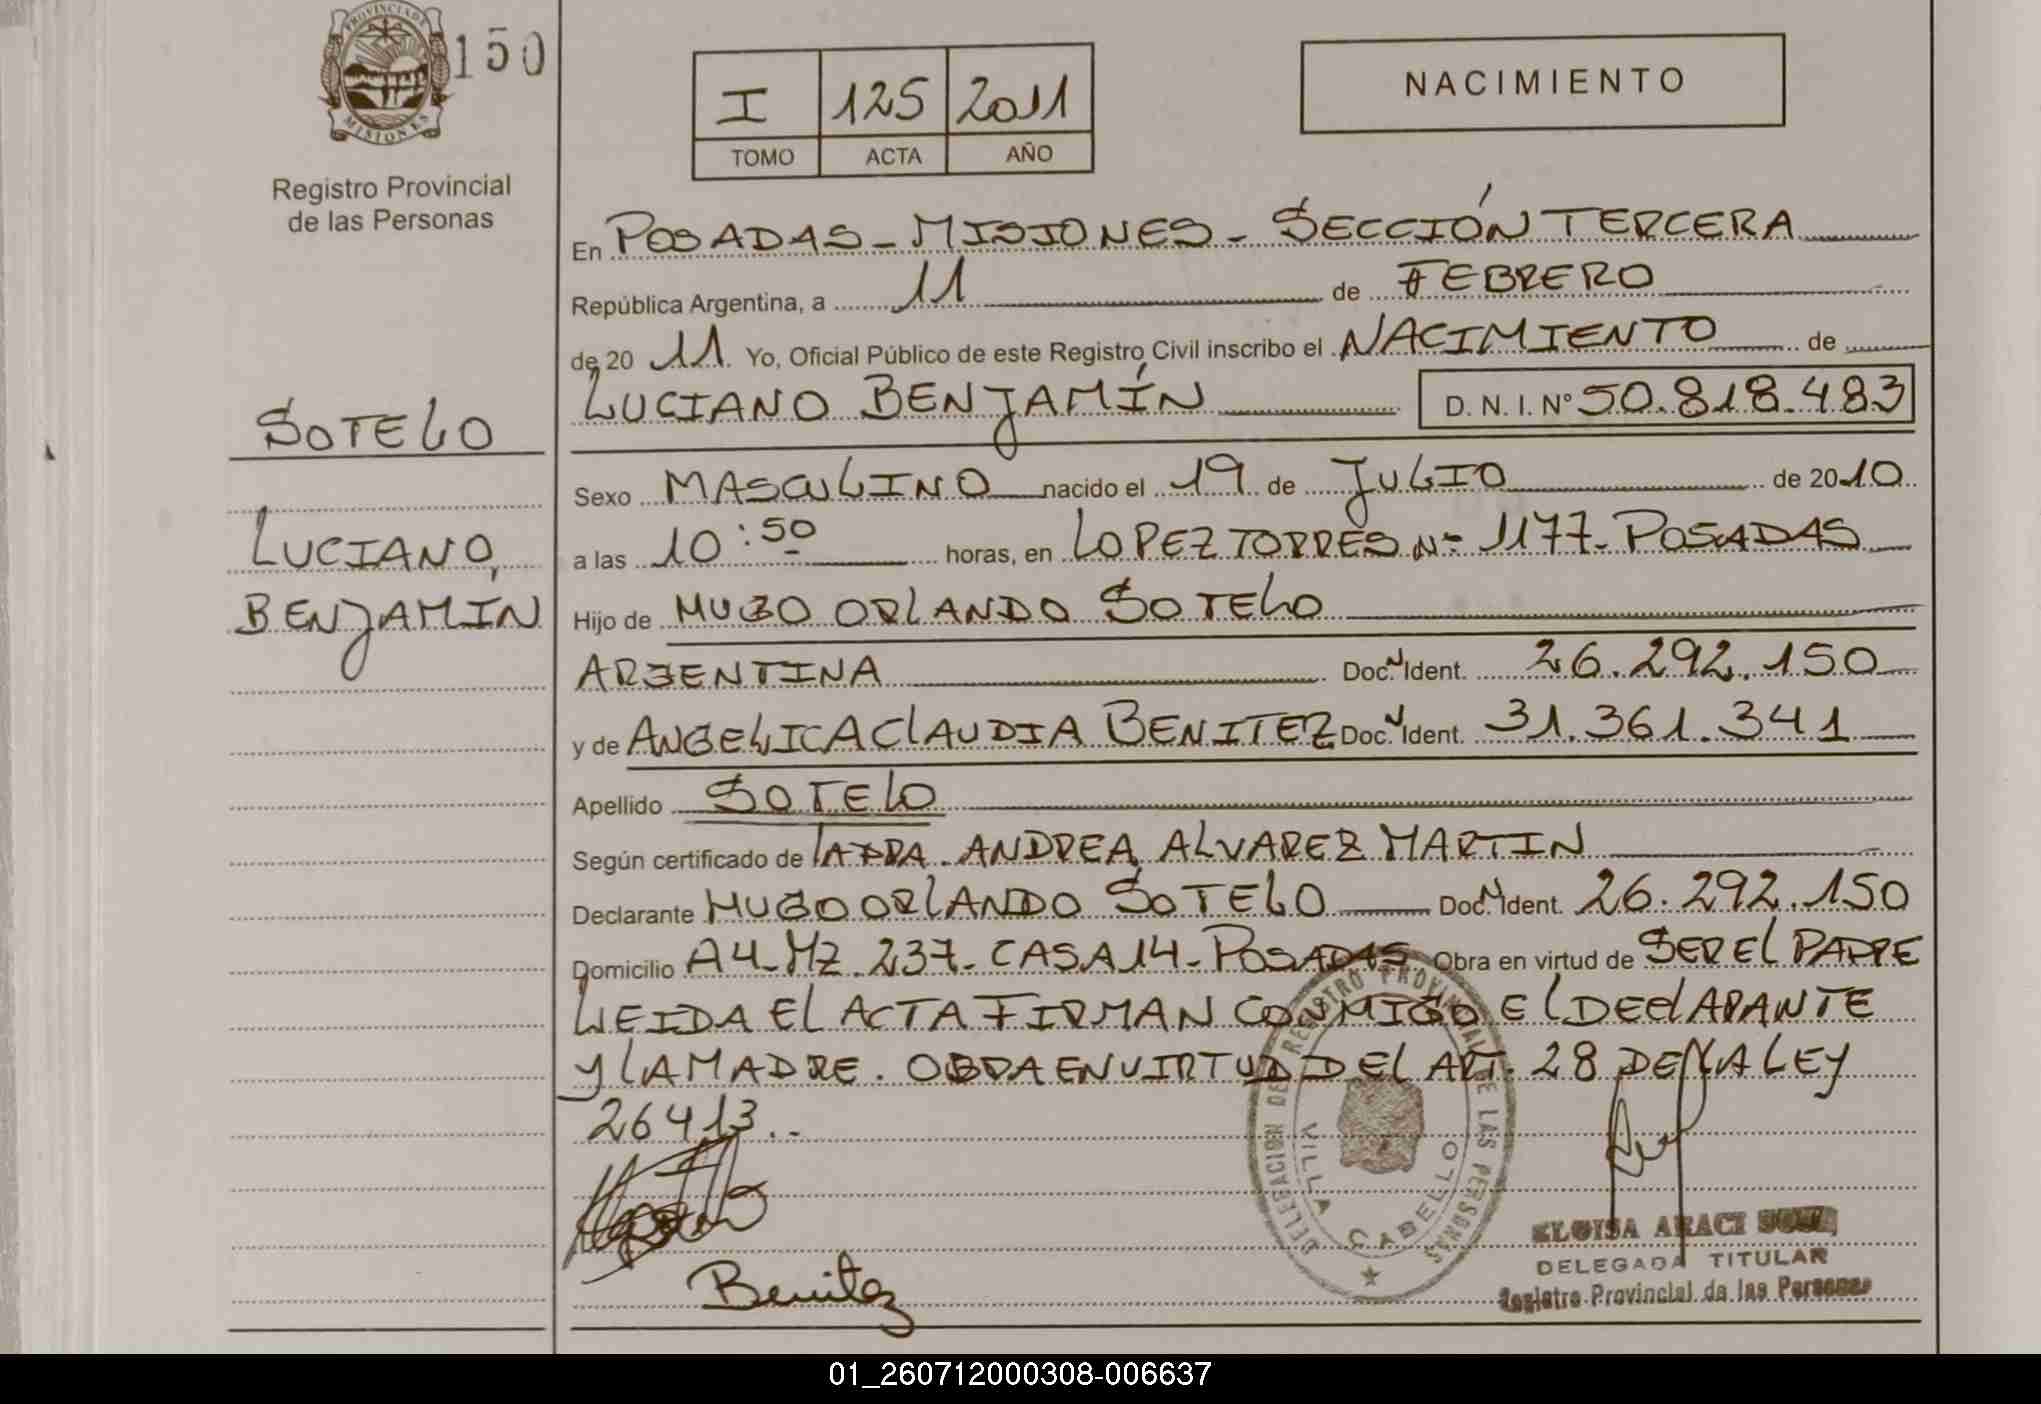 PROVINCIA DE
MISIONES
150
Registro Provincial
de las Personas
I 125 2011
TOMO ACTA AÑO
NACIMIENTO
En POSADAS - MISIONES - SECCIÓN TERCERA
República Argentina, a 11 de FEBRERO
de 20 11 Yo, Oficial Público de este Registro Civil inscribo el NACIMIENTO de
LUCIANO BENJAMÍN D. N. I. Nº 50.818.483
SOTELO
LUCIANO,
BENJAMIN
Sexo MASCULINO nacido el 19 de JULIO de 2010
a las 10:50 horas, en LOPEZ TORRES Nº 1177- POSADAS
Hijo de HUGO ORLANDO SOTELO
ARGENTINA Doc. N Ident. 26.292.150
y de ANGELICA CLAUDIA BENITEZ Doc. N Ident. 31.361.341
Apellido SOTELO
Según certificado de LA DRA. ANDREA ALVAREZ MARTIN
Declarante HUGO ORLANDO SOTELO Doc. N Ident. 26.292.150
Domicilio A4-MZ.237-CASA 14-POSADAS Obra en virtud de SER EL PADRE
LEIDA EL ACTA FIRMAN CONMIGO EL DECLARANTE
Y LA MADRE. OBRA EN VIRTUD DEL ART. 28 DE LA LEY
26413..
Benitez
DELEGACION DEL REGISTRO PROVINCIAL DE LAS PERSONAS
VILLA CABELLO
ELOISA ARACI
DELEGADA TITULAR
Registro Provincial de las Personas
01_260712000308-006637